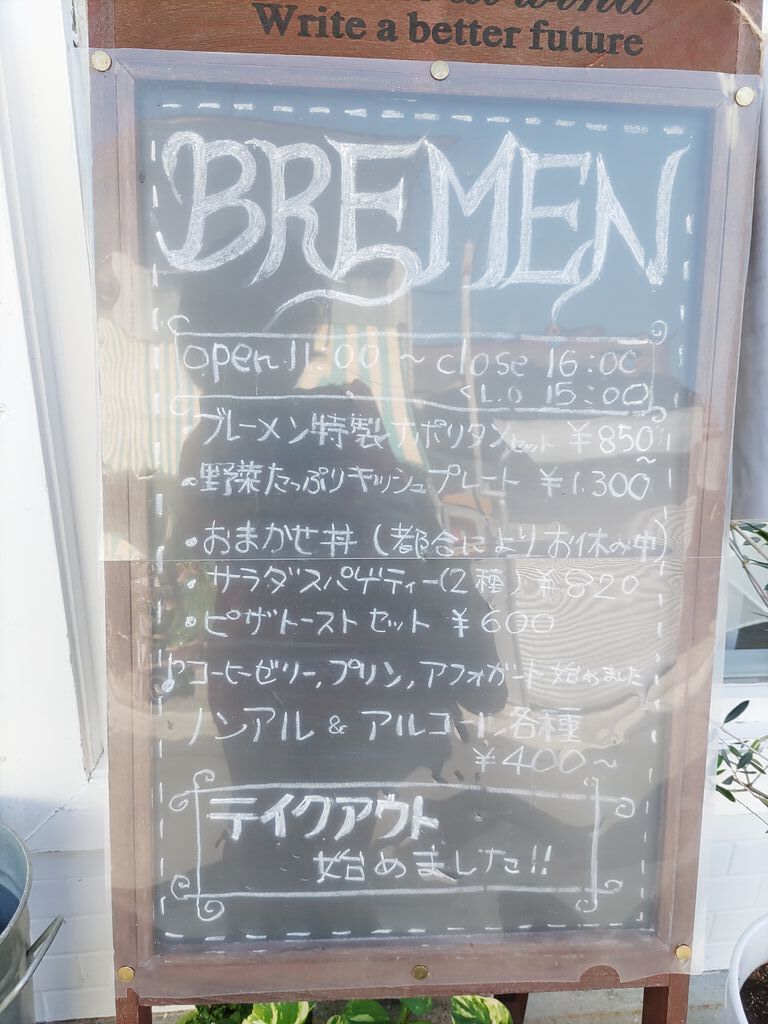 Write a better future
BREMEN
open 11:00 ~ close 16:00
<L.O 15:00
・ブレーメン特製ナポリタンセット ¥850~
・野菜たっぷりキッシュプレート ¥1.300
・おまかせ丼 (都合によりお休み中)
・サラダスパゲティー(2種) ¥820
・ピザトーストセット ¥600
♪コーヒーゼリー,プリン,アフォガート 始めました
ノンアル & アルコール各種
¥400~
テイクアウト
始めました!!